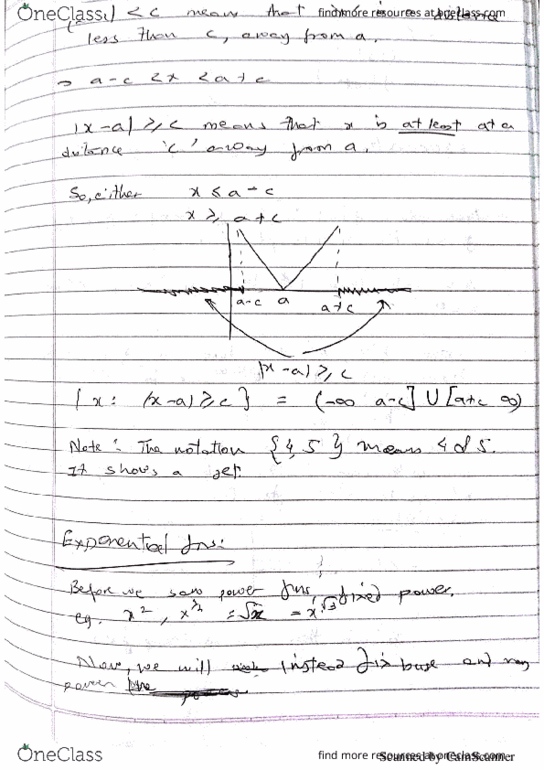 OneClass find more resources at oneclass.com
| < c means that
less than c, away from a.
→ a-c < x < a+c
|x-a| ≥ c means that x is at least at a
distance 'c' away from a.
So, either x ≤ a-c
x ≥ a+c
a-c a a+c
|x-a| ≥ c
{ x: |x-a| ≥ c } = (-∞ a-c] U [a+c ∞)
Note: The notation {4, 5} means 4 & 5.
It shows a set.
Exponential fns:
Before we saw power fns, fixed power.
eg. x², x^½ = √x = x^√3
Now, we will instead fix base and vary
power
OneClass find more resources at oneclass.com
Scanned by CamScanner